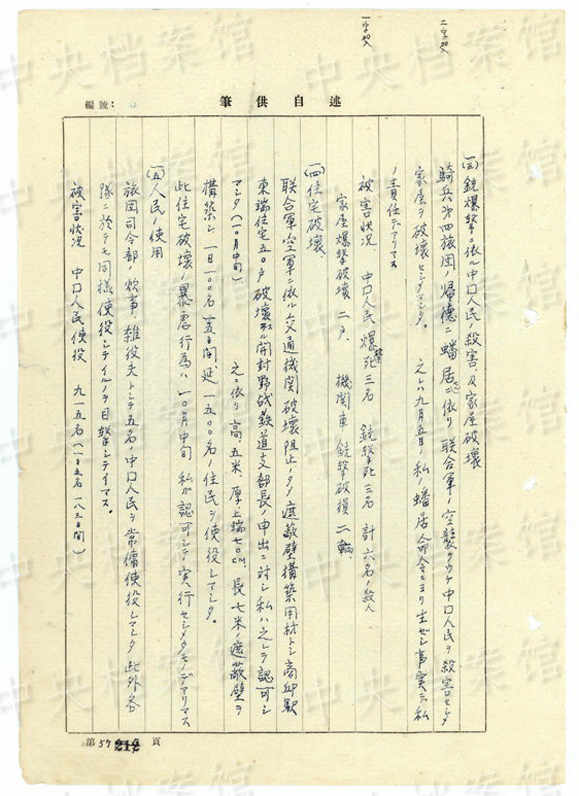 二字加入
一字加入
編號：
述自供筆
(三)銃爆撃ニ依ル中口人民ノ殺害、及家屋破壊
騎兵第四旅団ノ帰徳ニ蟠居ニ依リ 聯合軍ノ空襲ヲウケ中口人民ヲ殺害セシメ
家屋ヲ破壊セシメマシタ。 之レハ九月五日ノ私ノ蟠居命令ニヨリ生セシ事実デ私
ノ責任デアリマス
被害状況、 中口人民 爆撃死三名 銃撃死三名 計六名ノ殺人、
家屋爆撃破壊 二戸、 機関車銃撃破損 二輌、
(四)住宅破壊
聯合軍空軍ニ依ル交通機関破壊阻止ノタメ遮蔽壁構築用材トシ商邱駅
東端住宅五〇戸破壊スル開封野戦鉄道支部長ノ申出ニ対シ私ハ之レヲ認可シ
マシタ(一〇月中旬)、 之ニ依リ高、五米、厚、上端七〇cm、長七米ノ遮蔽壁ヲ
構築シ 一日一〇〇名一五日間、延一五〇〇名ノ住民ヲ使役シマシタ。
此住宅破壊ノ暴虐行為ハ一〇月中旬 私ガ認可シテ実行セシメタモノデアリマス
(五)人民ノ使用
旅団司令部ノ炊事、雑役夫トシテ五名ノ中口人民ヲ常傭使役シマシタ 此外各
隊ニ於テモ同様使役シテイルノヲ目撃シテイマス。
被害状況 中口人民使役 九一五名(一日五名 一八三日間)
第57 212 頁
中央档案馆